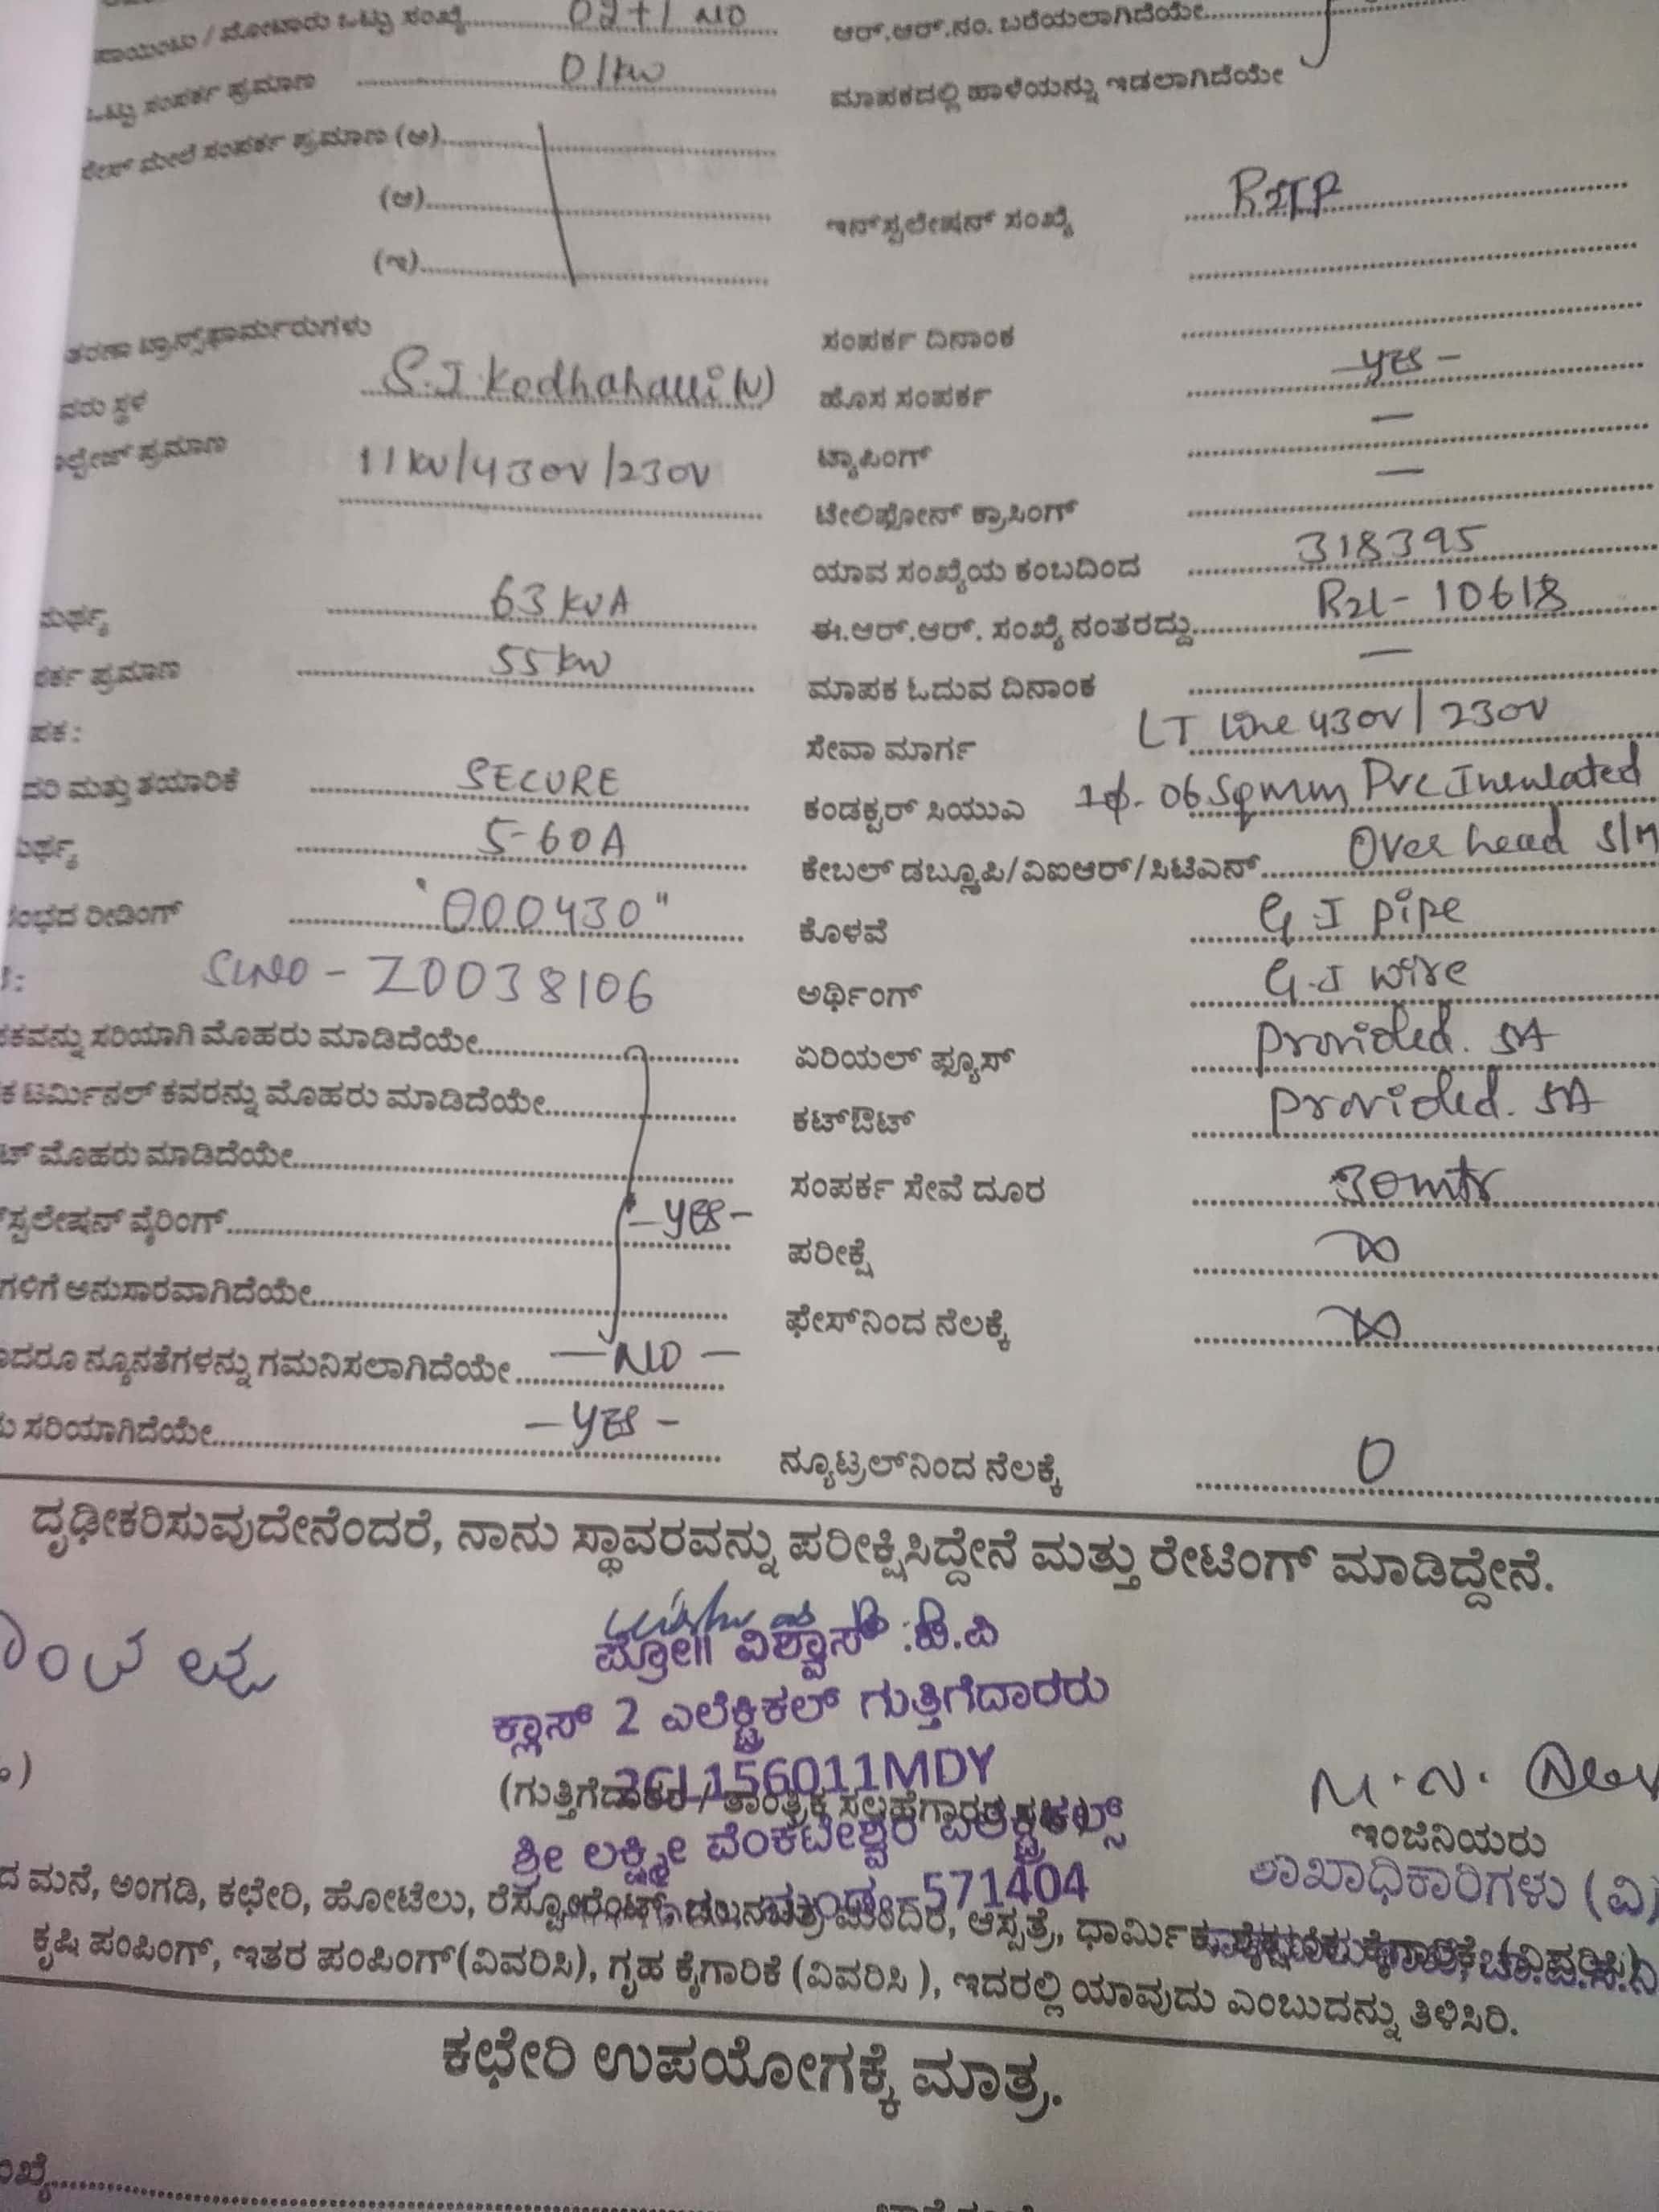 ಪಾಯಿಂಟು / ಮೋಟಾರು ಒಟ್ಟು ಸಂಖ್ಯೆ.......... 02+1 NO
ಒಟ್ಟು ಸಂಪರ್ಕ ಪ್ರಮಾಣ .......... 01kw
ಮೇಲೆ ಸಂಪರ್ಕ ಪ್ರಮಾಣ (ಅ)..........
(ಆ)..........
(ಇ)..........
ತರಣಾ ಟ್ರಾನ್ಸ್‌ಫಾರ್ಮರುಗಳು
ವರು ಸ್ಥಳ S.I. Kodhahalli (v)
ಪ್ರಮಾಣ 11kv/430v/230v
63 KVA
ಪ್ರಮಾಣ 55 kw
ಪಕ :
ದರಿ ಮತ್ತು ತಯಾರಿಕೆ SECURE
5-60A
ರೀಡಿಂಗ್ "000430"
SLNO - Z0038106
ಕವನ್ನು ಸರಿಯಾಗಿ ಮೊಹರು ಮಾಡಿದೆಯೇ..........
ಕ ಟರ್ಮಿನಲ್ ಕವರನ್ನು ಮೊಹರು ಮಾಡಿದೆಯೇ..........
ಟ್ ಮೊಹರು ಮಾಡಿದೆಯೇ..........
ಸ್ಪಲೇಷನ್ ವೈರಿಂಗ್.......... - yes -
ಗಳಿಗೆ ಅನುಸಾರವಾಗಿದೆಯೇ..........
ದರೂ ನ್ಯೂನತೆಗಳನ್ನು ಗಮನಿಸಲಾಗಿದೆಯೇ.......... - NO -
ಸರಿಯಾಗಿದೆಯೇ.......... - yes -
ಆರ್.ಆರ್.ನಂ. ಬರೆಯಲಾಗಿದೆಯೇ..........
ಮಾಪಕದಲ್ಲಿ ಹಾಳೆಯನ್ನು ಇಡಲಾಗಿದೆಯೇ
ಇನ್‌ಸ್ಪಲೇಷನ್ ಸಂಖ್ಯೆ
ಸಂಪರ್ಕ ದಿನಾಂಕ
ಹೊಸ ಸಂಪರ್ಕ - yes -
ಟ್ಯಾಪಿಂಗ್ —
ಟೇಲಿಫೋನ್ ಕ್ರಾಸಿಂಗ್ —
ಯಾವ ಸಂಖ್ಯೆಯ ಕಂಬದಿಂದ 318395
ಈ.ಆರ್.ಆರ್. ಸಂಖ್ಯೆ ನಂತರದ್ದು.......... R2L - 10618
ಮಾಪಕ ಓದುವ ದಿನಾಂಕ —
ಸೇವಾ ಮಾರ್ಗ LT Line 430v / 230v
ಕಂಡಕ್ಟರ್ ಸಿಯುಎ 1ϕ. 06 Sqmm Pvc Insulated
ಕೇಬಲ್ ಡಬ್ಲ್ಯೂಪಿ/ವಿಐಆರ್/ಸಿಟಿಎಸ್.......... Over head S/M
ಕೊಳವೆ G.I pipe
ಅರ್ಥಿಂಗ್ G.I wire
ಏರಿಯಲ್ ಫ್ಯೂಸ್ provided. 5A
ಕಟ್‌ಔಟ್ provided. 5A
ಸಂಪರ್ಕ ಸೇವೆ ದೂರ 30mtr
ಪರೀಕ್ಷೆ ∞
ಫೇಸ್‌ನಿಂದ ನೆಲಕ್ಕೆ ∞
ನ್ಯೂಟ್ರಲ್‌ನಿಂದ ನೆಲಕ್ಕೆ 0
ದೃಢೀಕರಿಸುವುದೇನೆಂದರೆ, ನಾನು ಸ್ಥಾವರವನ್ನು ಪರೀಕ್ಷಿಸಿದ್ದೇನೆ ಮತ್ತು ರೇಟಿಂಗ್ ಮಾಡಿದ್ದೇನೆ.
ಪ್ರೋ|| ವಿಶ್ವಾಸ್ .ಪಿ
ಕ್ಲಾಸ್ 2 ಎಲೆಕ್ಟ್ರಿಕಲ್ ಗುತ್ತಿಗೆದಾರರು
2CL156011MDY
(ಗುತ್ತಿಗೆದಾರರ / ತಾಂತ್ರಿಕ ಸಲಹೆಗಾರರ
ಶ್ರೀ ಲಕ್ಷ್ಮೀ ವೆಂಕಟೇಶ್ವರ ಎಲೆಕ್ಟ್ರಿಕಲ್ಸ್
571404
M. N.
ಇಂಜಿನಿಯರು
ಶಾಖಾಧಿಕಾರಿಗಳು (ವಿ)
ದ ಮನೆ, ಅಂಗಡಿ, ಕಛೇರಿ, ಹೋಟೆಲು, ರೆಸ್ಟೋರೆಂಟ್, ಚಲನಚಿತ್ರ ಮಂದಿರ, ಆಸ್ಪತ್ರೆ, ಧಾರ್ಮಿಕ, ಕೈಗಾರಿಕೆ (ವಿವರಿಸಿ)
ಕೃಷಿ ಪಂಪಿಂಗ್, ಇತರ ಪಂಪಿಂಗ್(ವಿವರಿಸಿ), ಗೃಹ ಕೈಗಾರಿಕೆ (ವಿವರಿಸಿ ), ಇದರಲ್ಲಿ ಯಾವುದು ಎಂಬುದನ್ನು ತಿಳಿಸಿರಿ.
ಕಛೇರಿ ಉಪಯೋಗಕ್ಕೆ ಮಾತ್ರ.